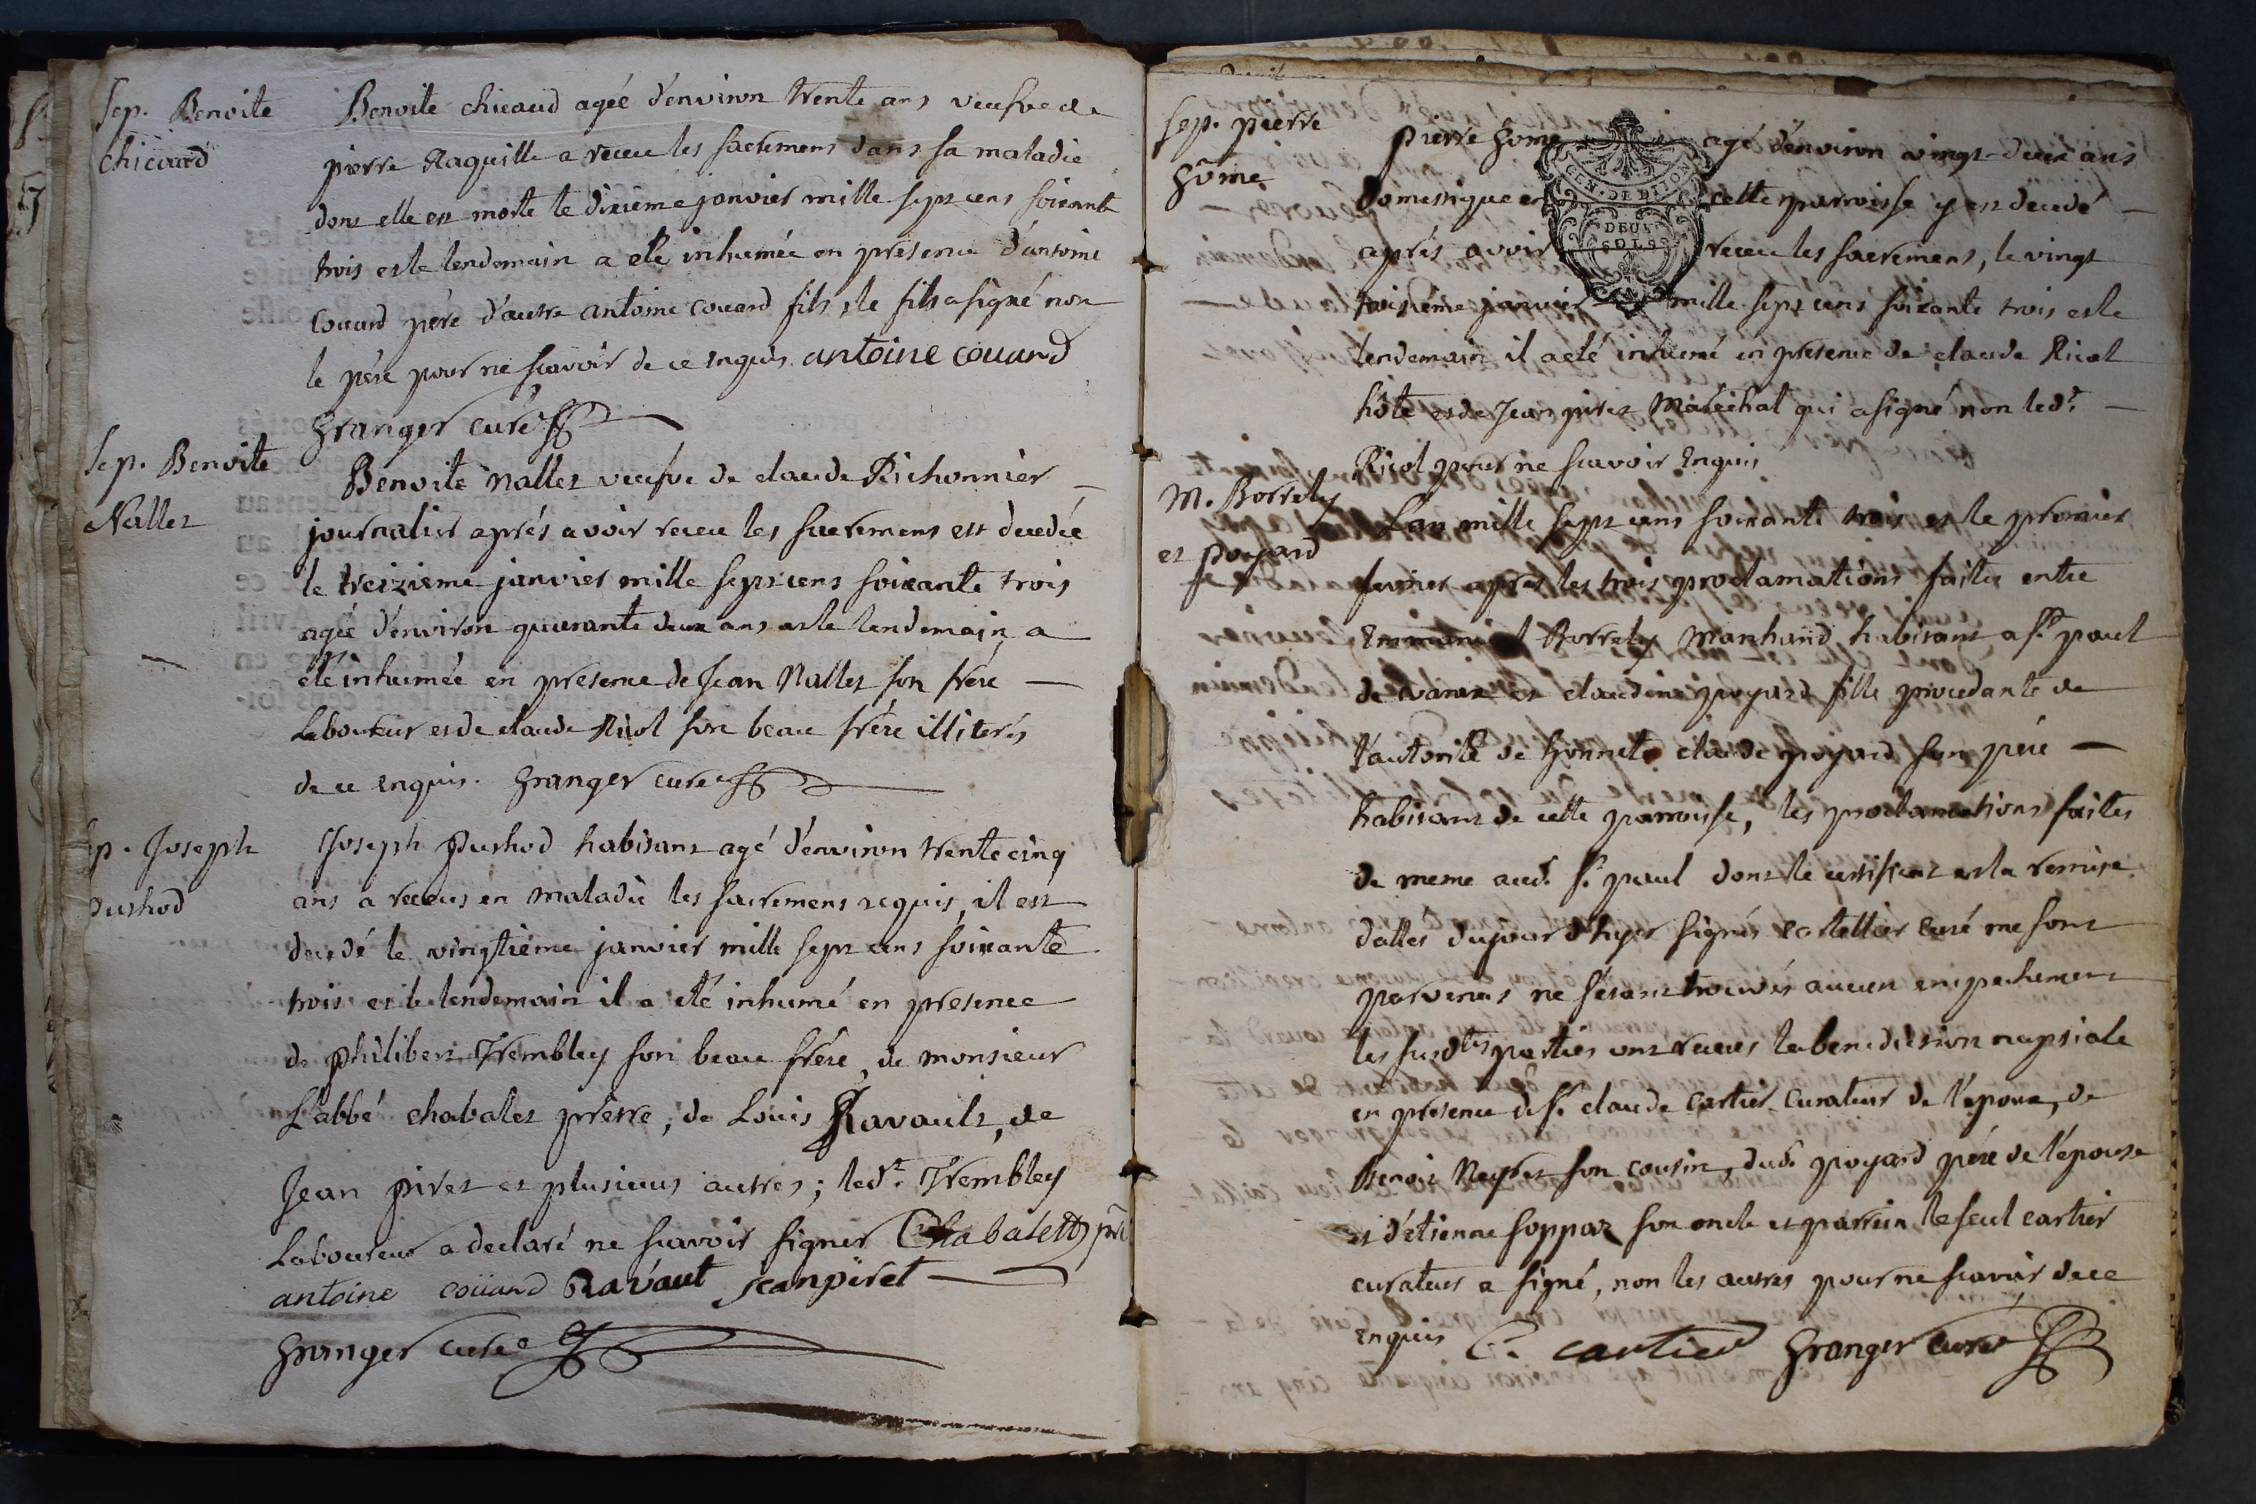 Sep. Benoite
chicaud
Benoite chicaud agée d'environ trente ans veufve de
pierre Raquille a receu les sacremens dans sa maladie
dont elle est morte le dixième janvier mille sept cens soixante
trois et le lendemain a eté inhumée en presence d'antoine
couard père d'autre antoine couard fils, le fils a signé non
le père pour ne scavoir de ce enquis antoine couard
Granger curé
Sep. Benoite
Nallet
Benoite Nallet veufve de claude Pichonnier
journalier aprés avoir receu les sacremens est decedée
le treizieme janvier mille sept cens soixante trois
agée d'environ quarante deux ans et le lendemain a
eté inhumée en presence de Jean Nallet son frére
Laboureur et de claude Ricol son beau frére illiterés
de ce enquis. Granger curé
Sep. Joseph
Pushod
Joseph Pushod habitant agé d'environ trente cinq
ans a receus en maladie les sacremens requis, il est
decedé le vingtiéme janvier mille sept cens soixante
trois et le lendemain il a eté inhumé en presence
de philibert Trembley son beau frére, de monsieur
L'abbé chabalet prêtre, de Louis Ravault, de
Jean piret et plusieurs autres; led.t Trembley
Laboureur a declaré ne scavoir signer Chabalet prê
antoine coüard Ravaut Jeanpiret
Granger curé
Sep. pierre
Gôme
GEN. DE DIJON
DEUX
SOLS
pierre Gome agé d'environ vingt-deux ans
domestique en cette parroisse y est decedé
aprés avoir receu les sacremens, le vingt
troisiéme janvier mille sept cens soixante trois et le
lendemain il a eté inhumé en presence de claude Ricol
hôte et de Jean piret Maréchal qui a signé non led.t
Ricol pour ne scavoir enquis
M. Borrely
et poyard
L'an mille sept cens soixante trois et le premier
fevrier aprés les trois proclamations faites entre
Emmanuel Borrely Marchand habitant a s.t paul
de varax et claudine poyard fille procedante de
l'autorité de honnete claude poyard son pére
habitant de cette parroisse, les proclamations faites
de meme aud. s.t paul dont le certificat et la remise
dattés dujourd'hyer signés cortellier curé me sont
parvenus ne s'etant trouvés aucun empechement
les susd.tes parties ont receues la benediction nuptiale
en presence de s.r claude cartier curateur de l'epoux, de
Benoit Neyret son cousin, dud. poyard pére de l'épouse
et d'etienne soppaz son oncle et parrein le seul cartier
curateur a signé, non les autres pour ne scavoir de ce
enquis C. cartier Granger curé